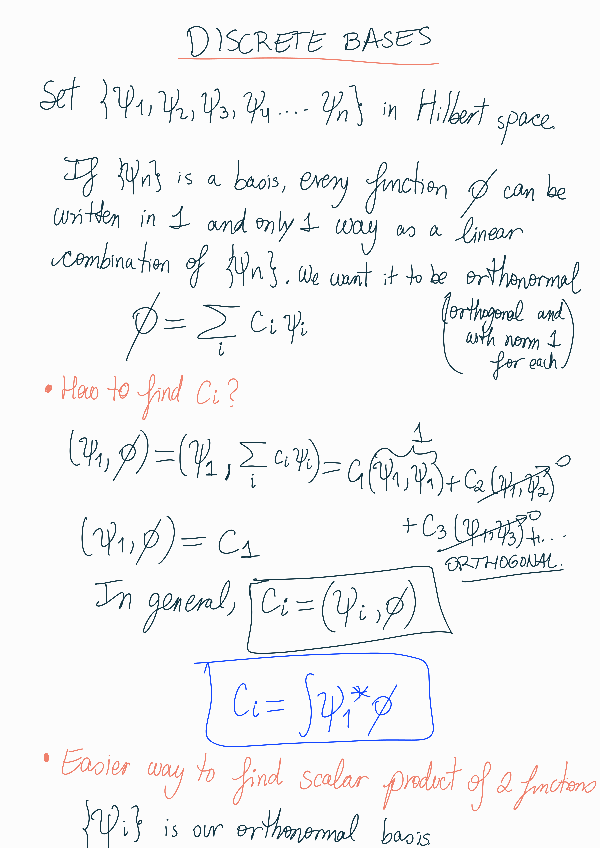 DISCRETE BASES
Set {Ψ1, Ψ2, Ψ3, Ψ4 .... Ψn} in Hilbert space.
If {Ψn} is a basis, every function ϕ can be
written in 1 and only 1 way as a linear
combination of {Ψn}. We want it to be orthonormal
(orthogonal and
with norm 1
for each)
ϕ = ∑i Ci Ψi
• How to find Ci?
(Ψ1, ϕ) = (Ψ1, ∑i ci Ψi) = C1 (Ψ1, Ψ1) + C2 (Ψ1, Ψ2)
1
0
+ C3 (Ψ1, Ψ3) + ...
0
(Ψ1, ϕ) = C1
ORTHOGONAL.
In general, Ci = (Ψi, ϕ)
Ci = ∫Ψ1* ϕ
• Easier way to find scalar product of 2 functions
{Ψi} is our orthonormal basis